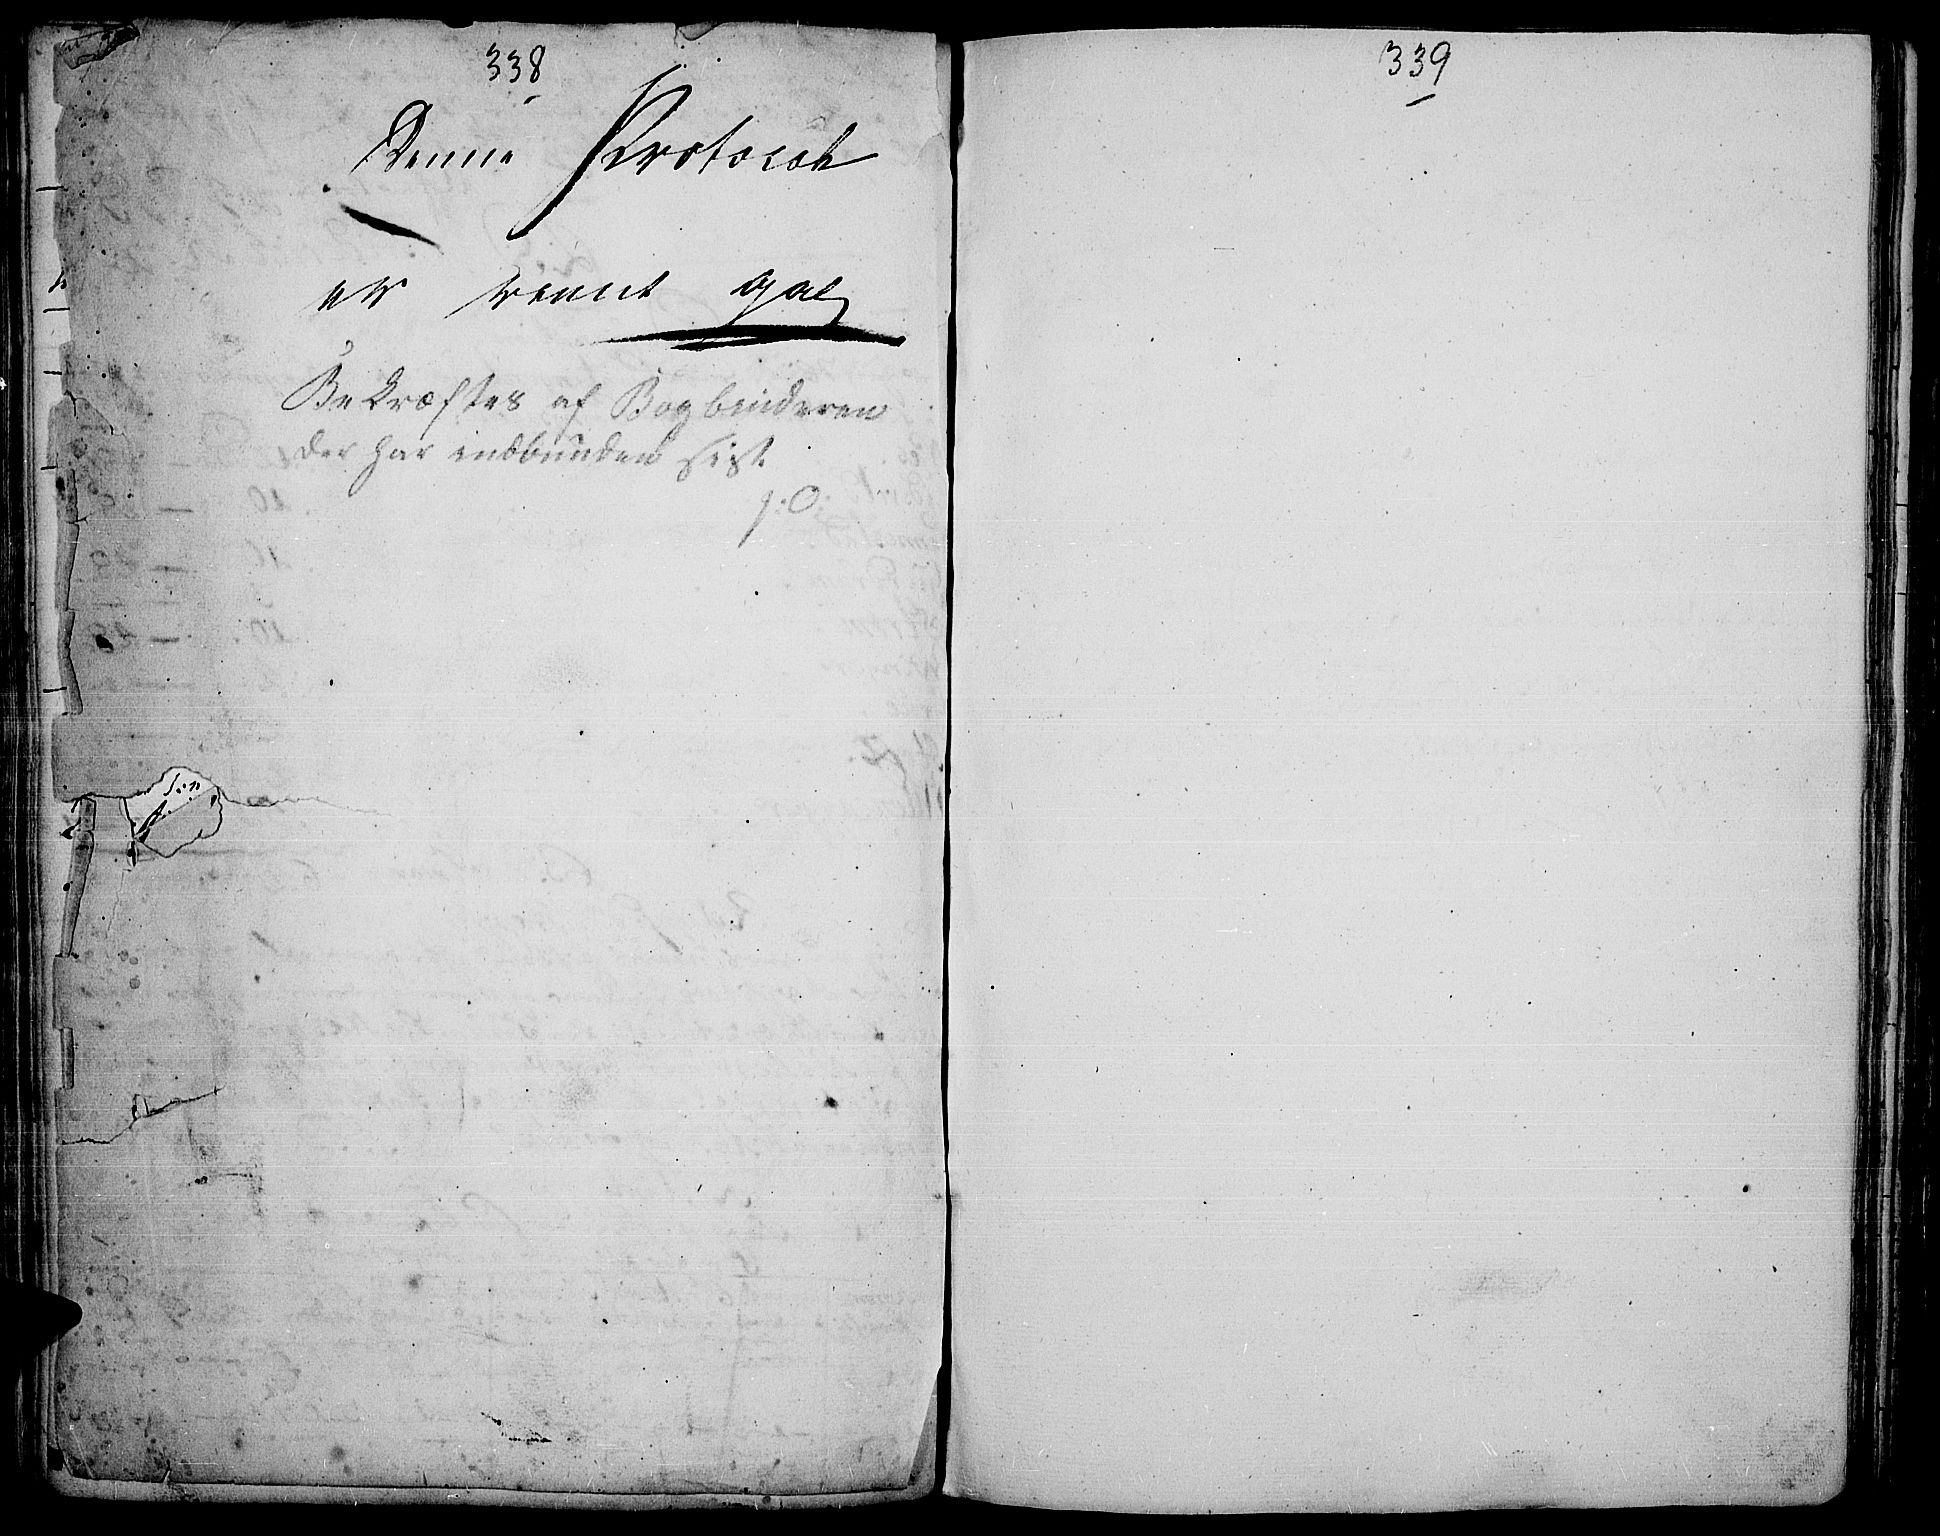 338
Denne Protocol
er reent gal
Bekræftes af Bogbinderen
der har indbunden sist.
J:O.
339